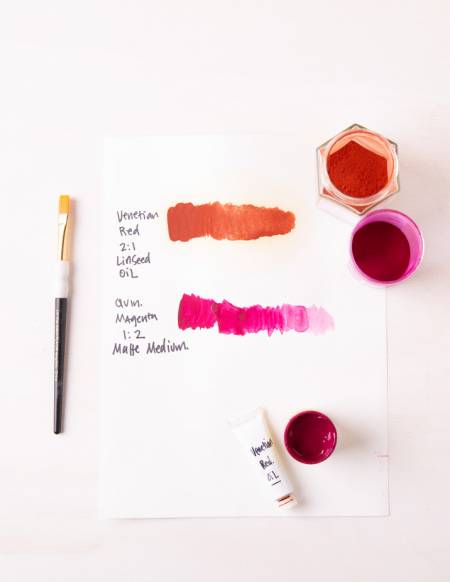 Venetian
Red
2:1
Linseed
Oil
Quin.
Magenta
1:2
Matte Medium.
Venetian
Red.
Oil